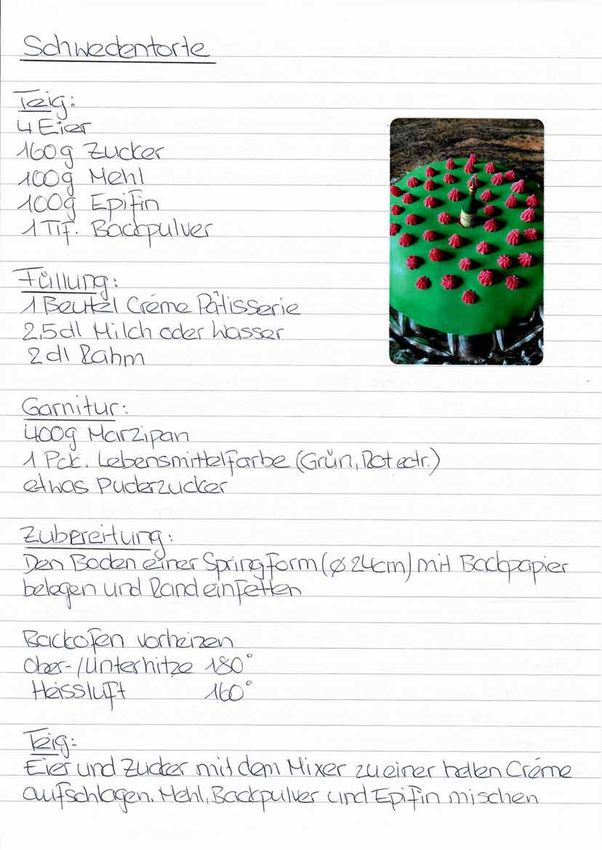 Schwedentorte
Teig:
4 Eier
160g Zucker
100g Mehl
100g Epifin
1 Tif. Backpulver
Füllung:
1 Beutel Créme Pâtisserie
2,5dl Milch oder Wasser
2dl Rahm
Garnitur:
400g Marzipan
1 Pck. Lebensmittelfarbe (Grün, Rot ectr.)
etwas Puderzucker
Zubereitung:
Den Boden einer Springform (ø 24cm) mit Backpapier
belegen und Rand einfetten
Backofen vorheizen
Ober-/Unterhitze 180°
Heissluft 160°
Teig:
Eier und Zucker mit dem Mixer zu einer hellen Créme
aufschlagen. Mehl, Backpulver und Epifin mischen